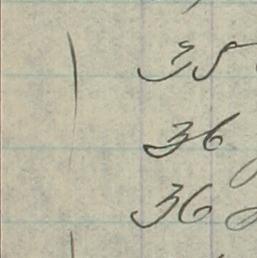 35
36
36